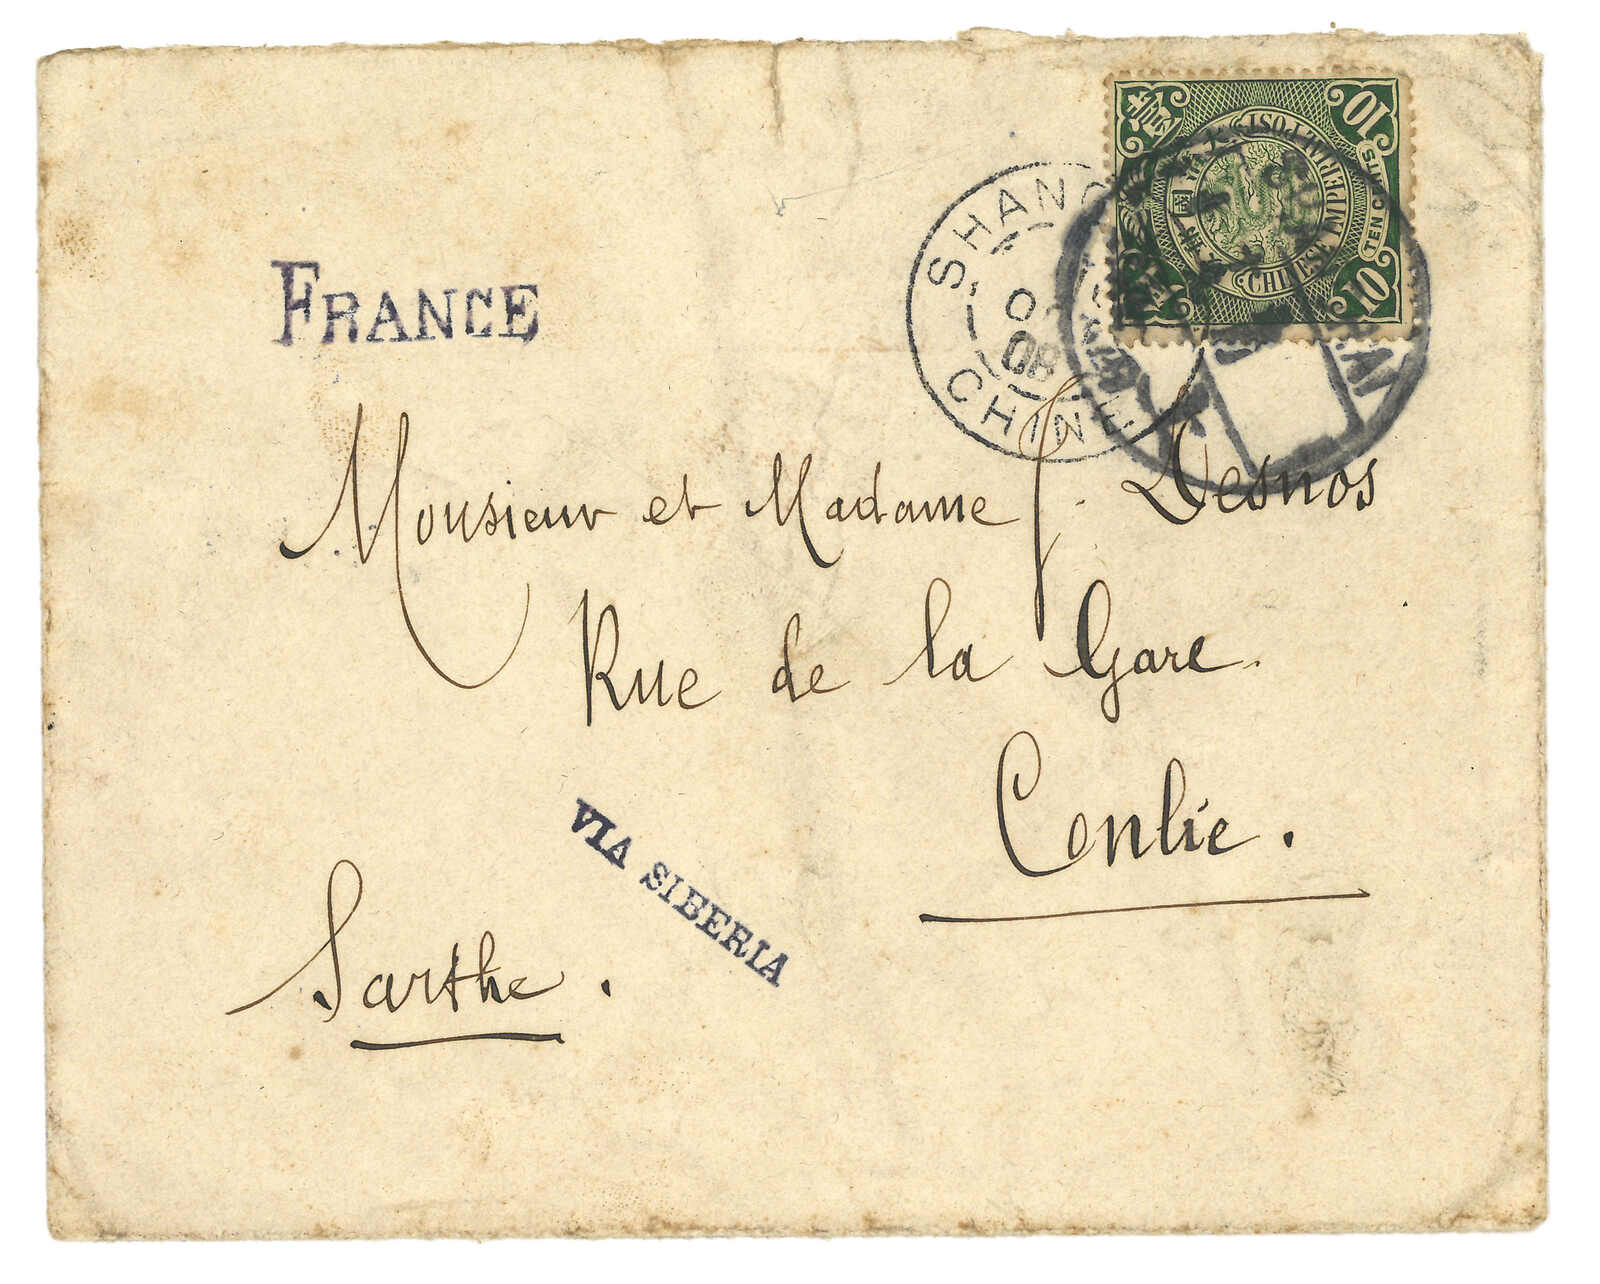 FRANCE
10
TEN CENTS
10
CHINESE IMPERIAL POST
SHANG
08
CHINE
Monsieur et Madame J. Desnos
Rue de la Gare.
Conlie.
VIA SIBERIA
Sarthe.